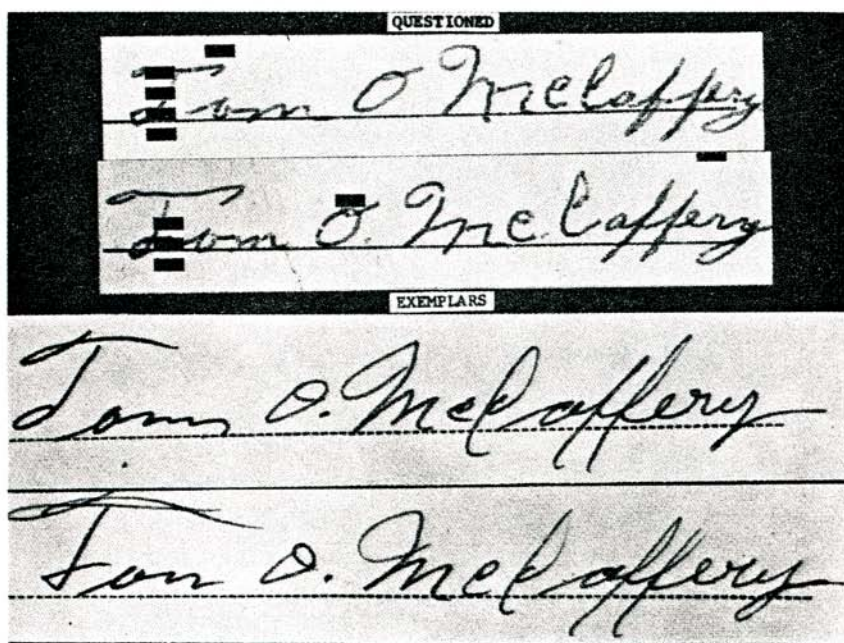 QUESTIONED
Tom O McCaffery
Tom O. McCaffery
EXEMPLARS
Tom O. McCaffery
Tom O. McCaffery